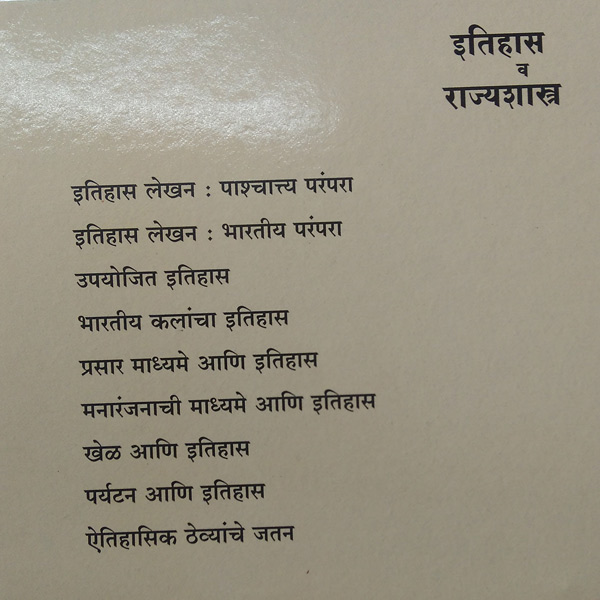 इतिहास
व
राज्यशास्त्र
इतिहास लेखन : पाश्चात्त्य परंपरा
इतिहास लेखन : भारतीय परंपरा
उपयोजित इतिहास
भारतीय कलांचा इतिहास
प्रसार माध्यमे आणि इतिहास
मनारंजनाची माध्यमे आणि इतिहास
खेळ आणि इतिहास
पर्यटन आणि इतिहास
ऐतिहासिक ठेव्यांचे जतन